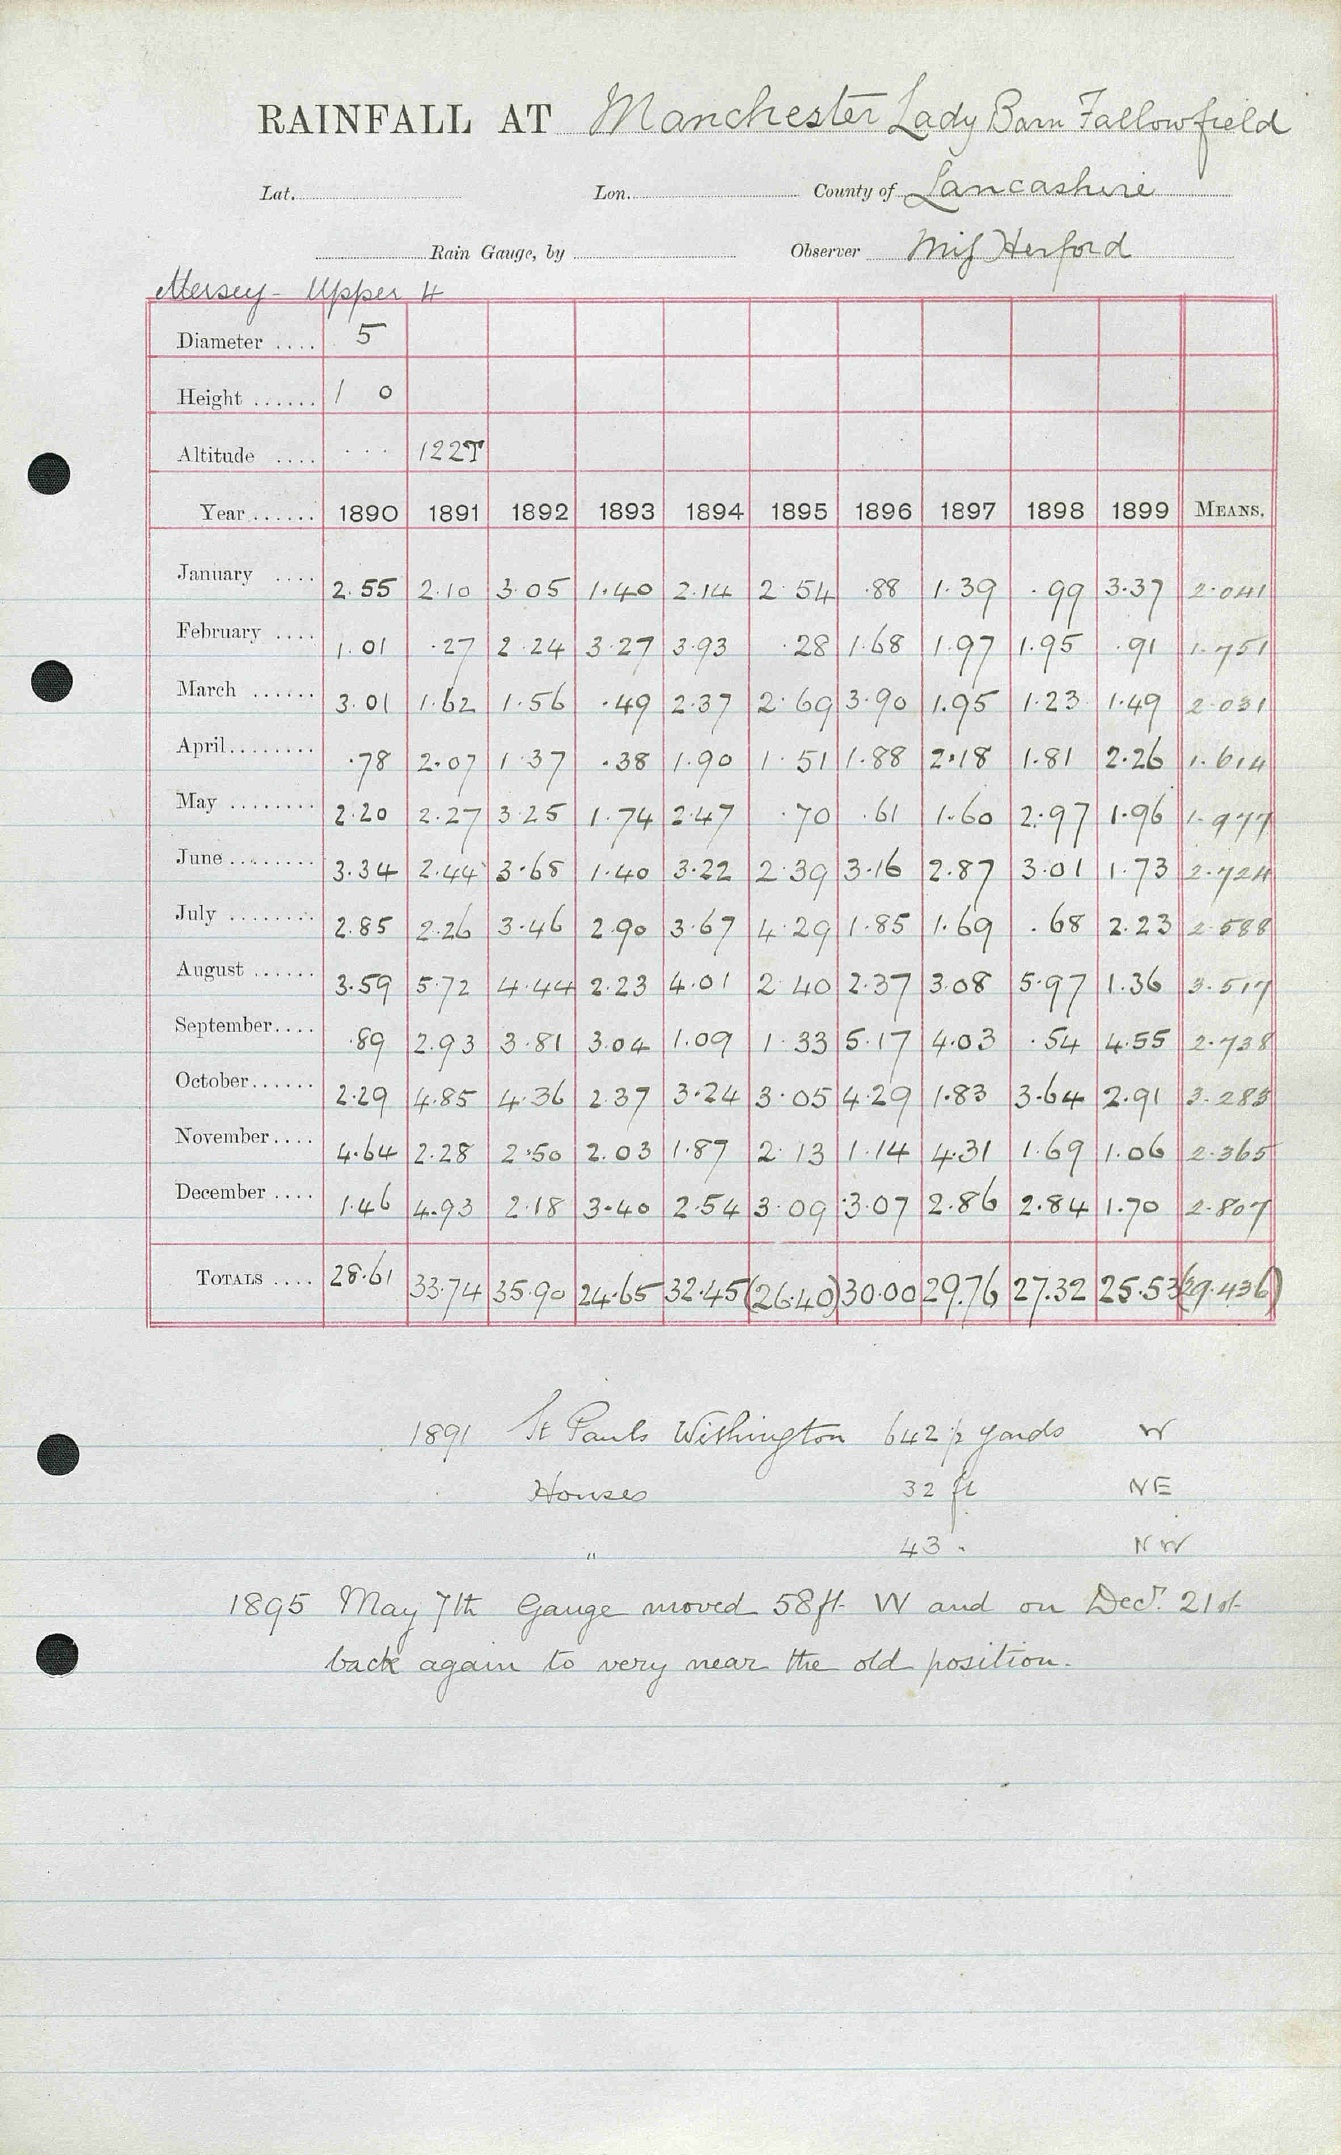 RAINFALL AT Manchester Lady Barn Fallowfield
Lat. Lon. County of Lancashire
Rain Gauge, by Observer Miss Herford
Mersey - Upper 4
Diameter .... 5
Height ...... 1 0
Altitude .... ... 122T
Year ...... 1890 1891 1892 1893 1894 1895 1896 1897 1898 1899 MEANS.
January .... 2.55 2.10 3.05 1.40 2.14 2.54 .88 1.39 .99 3.37 2.041
February .... 1.01 .27 2.24 3.27 3.93 .28 1.68 1.97 1.95 .91 1.751
March ...... 3.01 1.62 1.56 .49 2.37 2.69 3.90 1.95 1.23 1.49 2.031
April........ .78 2.07 1.37 .38 1.90 1.51 1.88 2.18 1.81 2.26 1.614
May ........ 2.20 2.27 3.25 1.74 2.47 .70 .61 1.60 2.97 1.96 1.977
June ........ 3.34 2.44 3.68 1.40 3.22 2.39 3.16 2.87 3.01 1.73 2.724
July ........ 2.85 2.26 3.46 2.90 3.67 4.29 1.85 1.69 .68 2.23 2.588
August ...... 3.59 5.72 4.44 2.23 4.01 2.40 2.37 3.08 5.97 1.36 3.517
September.... .89 2.93 3.81 3.04 1.09 1.33 5.17 4.03 .54 4.55 2.738
October...... 2.29 4.85 4.36 2.37 3.24 3.05 4.29 1.83 3.64 2.91 3.283
November.... 4.64 2.28 2.50 2.03 1.87 2.13 1.14 4.31 1.69 1.06 2.365
December .... 1.46 4.93 2.18 3.40 2.54 3.09 3.07 2.86 2.84 1.70 2.807
TOTALS .... 28.61 33.74 35.90 24.65 32.45 (26.40) 30.00 29.76 27.32 25.53 (29.436)
1891 St Pauls Withington 642½ yards W
Houses 32 ft NE
" 43 " NW
1895 May 7th Gauge moved 58ft W and on Decr. 21st
back again to very near the old position.